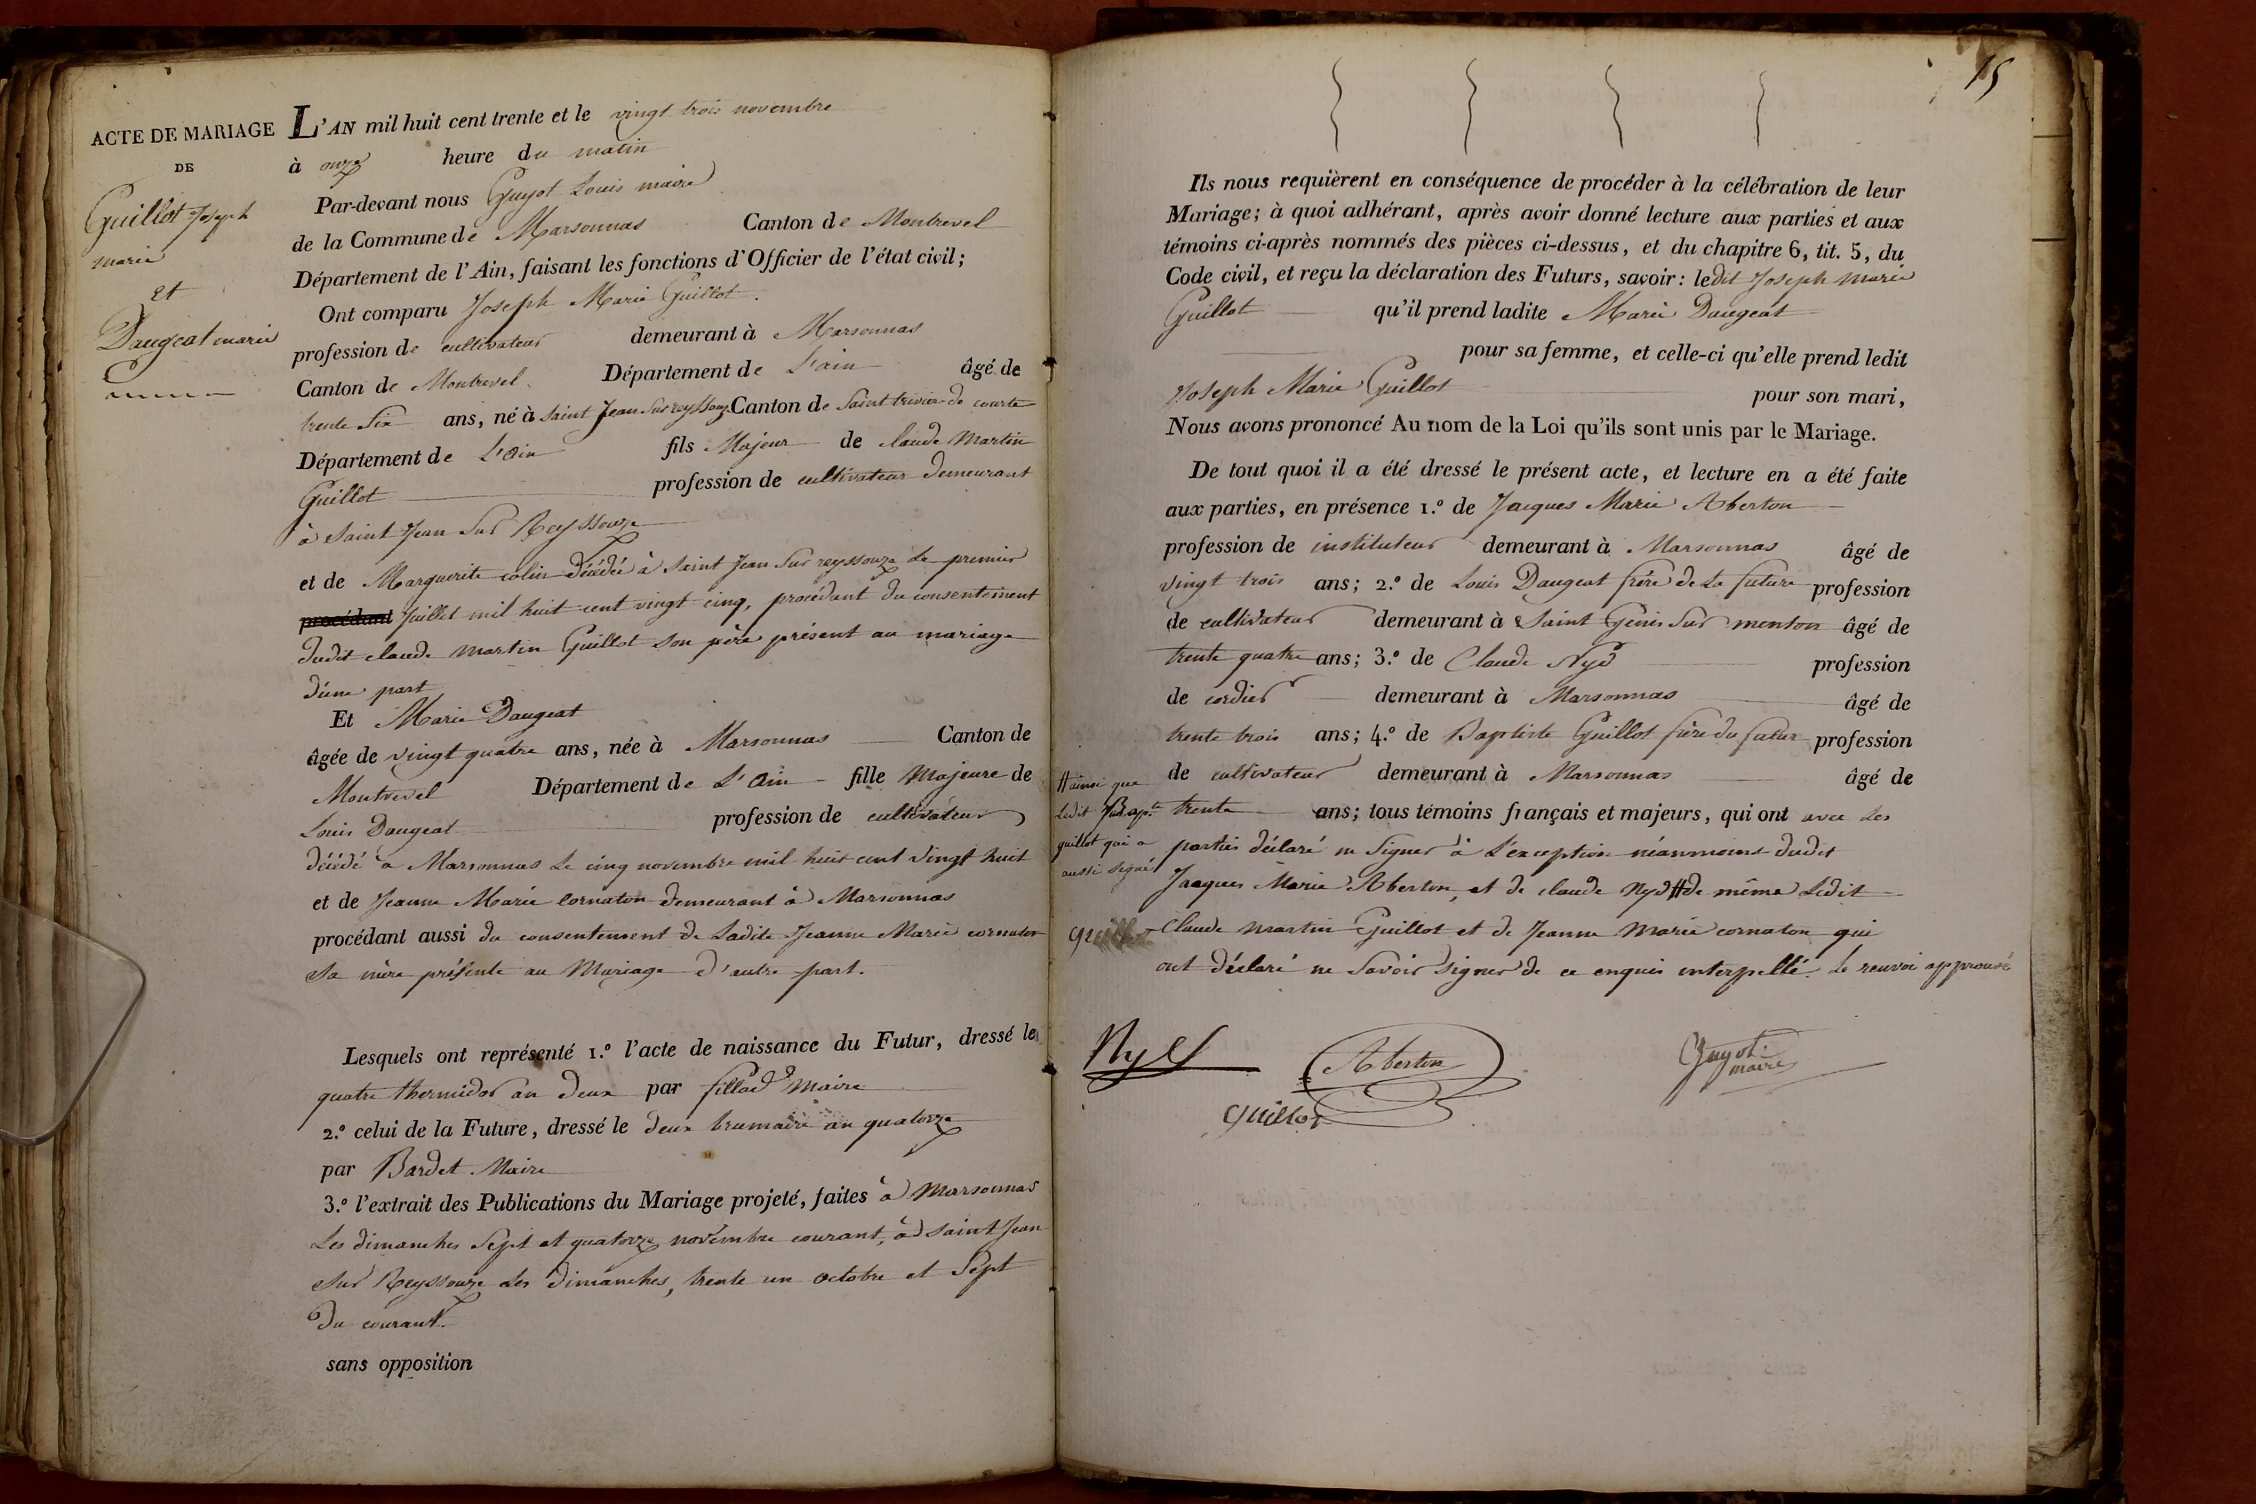 ACTE DE MARIAGE
DE
Guillot Joseph
marie
et
Daugeat marie
L'AN mil huit cent trente et le vingt trois novembre
à onze heure du matin
Par-devant nous Guyot Louis maire
de la Commune de Marsonnas Canton de Montrevel
Département de l'Ain, faisant les fonctions d'Officier de l'état civil;
Ont comparu Joseph Marie Guillot.
profession de cultivateur demeurant à Marsonnas
Canton de Montrevel Département de L'ain âgé de
trente Six ans, né à Saint Jean Sur reyssouze Canton de Saint trivier de courte
Département de L'Ain fils Majeur de Claude Martin
Guillot profession de cultivateur demeurant
à Saint Jean Sur Reyssouze
et de Marguerite colin décédée à Saint Jean Sur reyssouze Le premier
procédant Juillet mil huit cent vingt cinq, procédant du consentement
dudit claude martin Guillot Son père présent au mariage
d'une part
Et Marie Daugeat
âgée de vingt quatre ans, née à Marsonnas Canton de
Montrevel Département de L'Ain fille Majeure de
Louis Daugeat profession de cultivateur
décédé à Marsonnas Le cinq novembre mil huit cent vingt huit
et de Jeanne Marie Cornaton demeurant à Marsonnas
procédant aussi du consentement de Ladite Jeanne Marie cornaton
Sa mère présente au Mariage d'autre part.
Lesquels ont représenté 1.º l'acte de naissance du Futur, dressé le
quatre thermidor an deux par fillod Maire
2.º celui de la Future, dressé le deux brumaire an quatorze
par Bardet Maire
3.º l'extrait des Publications du Mariage projeté, faites à Marsonnas
Les dimanches Sept et quatorze novembre courant, à Saint Jean
Sur Reyssouze Les dimanches, trente un octobre et Sept
du courant.
sans opposition
15
Ils nous requièrent en conséquence de procéder à la célébration de leur
Mariage; à quoi adhérant, après avoir donné lecture aux parties et aux
témoins ci-après nommés des pièces ci-dessus, et du chapitre 6, tit. 5, du
Code civil, et reçu la déclaration des Futurs, savoir: ledit Joseph Marie
Guillot qu'il prend ladite Marie Daugeat
pour sa femme, et celle-ci qu'elle prend ledit
Joseph Marie Guillot pour son mari,
Nous avons prononcé Au nom de la Loi qu'ils sont unis par le Mariage.
De tout quoi il a été dressé le présent acte, et lecture en a été faite
aux parties, en présence 1.º de Jacques Marie Aberton
profession de instituteur demeurant à Marsonnas âgé de
vingt trois ans; 2.º de Louis Daugeat frère de La future profession
de cultivateur demeurant à Saint Genis Sur menton âgé de
trente quatre ans; 3.º de Claude Nyd profession
de cordier demeurant à Marsonnas âgé de
trente trois ans; 4.º de Baptiste Guillot frère du futur profession
de cultivateur demeurant à Marsonnas âgé de
trente ans; tous témoins français et majeurs, qui ont avec Les
parties déclaré ne Signer à L'exception néanmoins dudit
Jacques Marie Aberton, et de claude Nyd # de même Ledit
Claude Martin Guillot et de Jeanne Marie cornaton qui
ont déclaré ne Savoir Signer de ce enquis interpellé. Le renvoi approuvé
# ainsi que
Ledit Bapte
guillot qui a
aussi signé
guillot
Nyd
Aberton
Guyot
maire
guillot